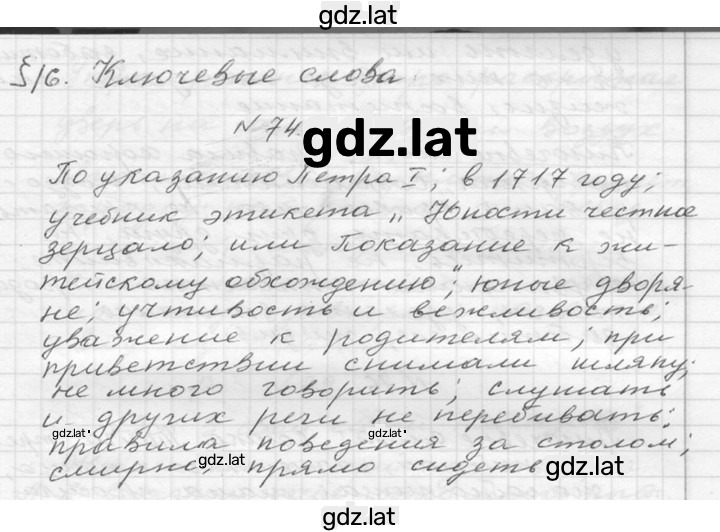 gdz.lat
§16. Ключевые слова.
№ 74.
gdz.lat
По указанию Петра I; в 1717 году;
учебник этикета „Юности честное
зерцало; или Показание к жи-
тейскому обхождению“; юные дворя-
не; учтивость и вежливость;
уважение к родителям; при
приветствии снимали шляпу;
не много говорить; слушать
и других речи не перебивать;
gdz.lat gdz.lat
правила поведения за столом;
смирно, прямо сидеть
gdz.lat gdz.lat
gdz.lat